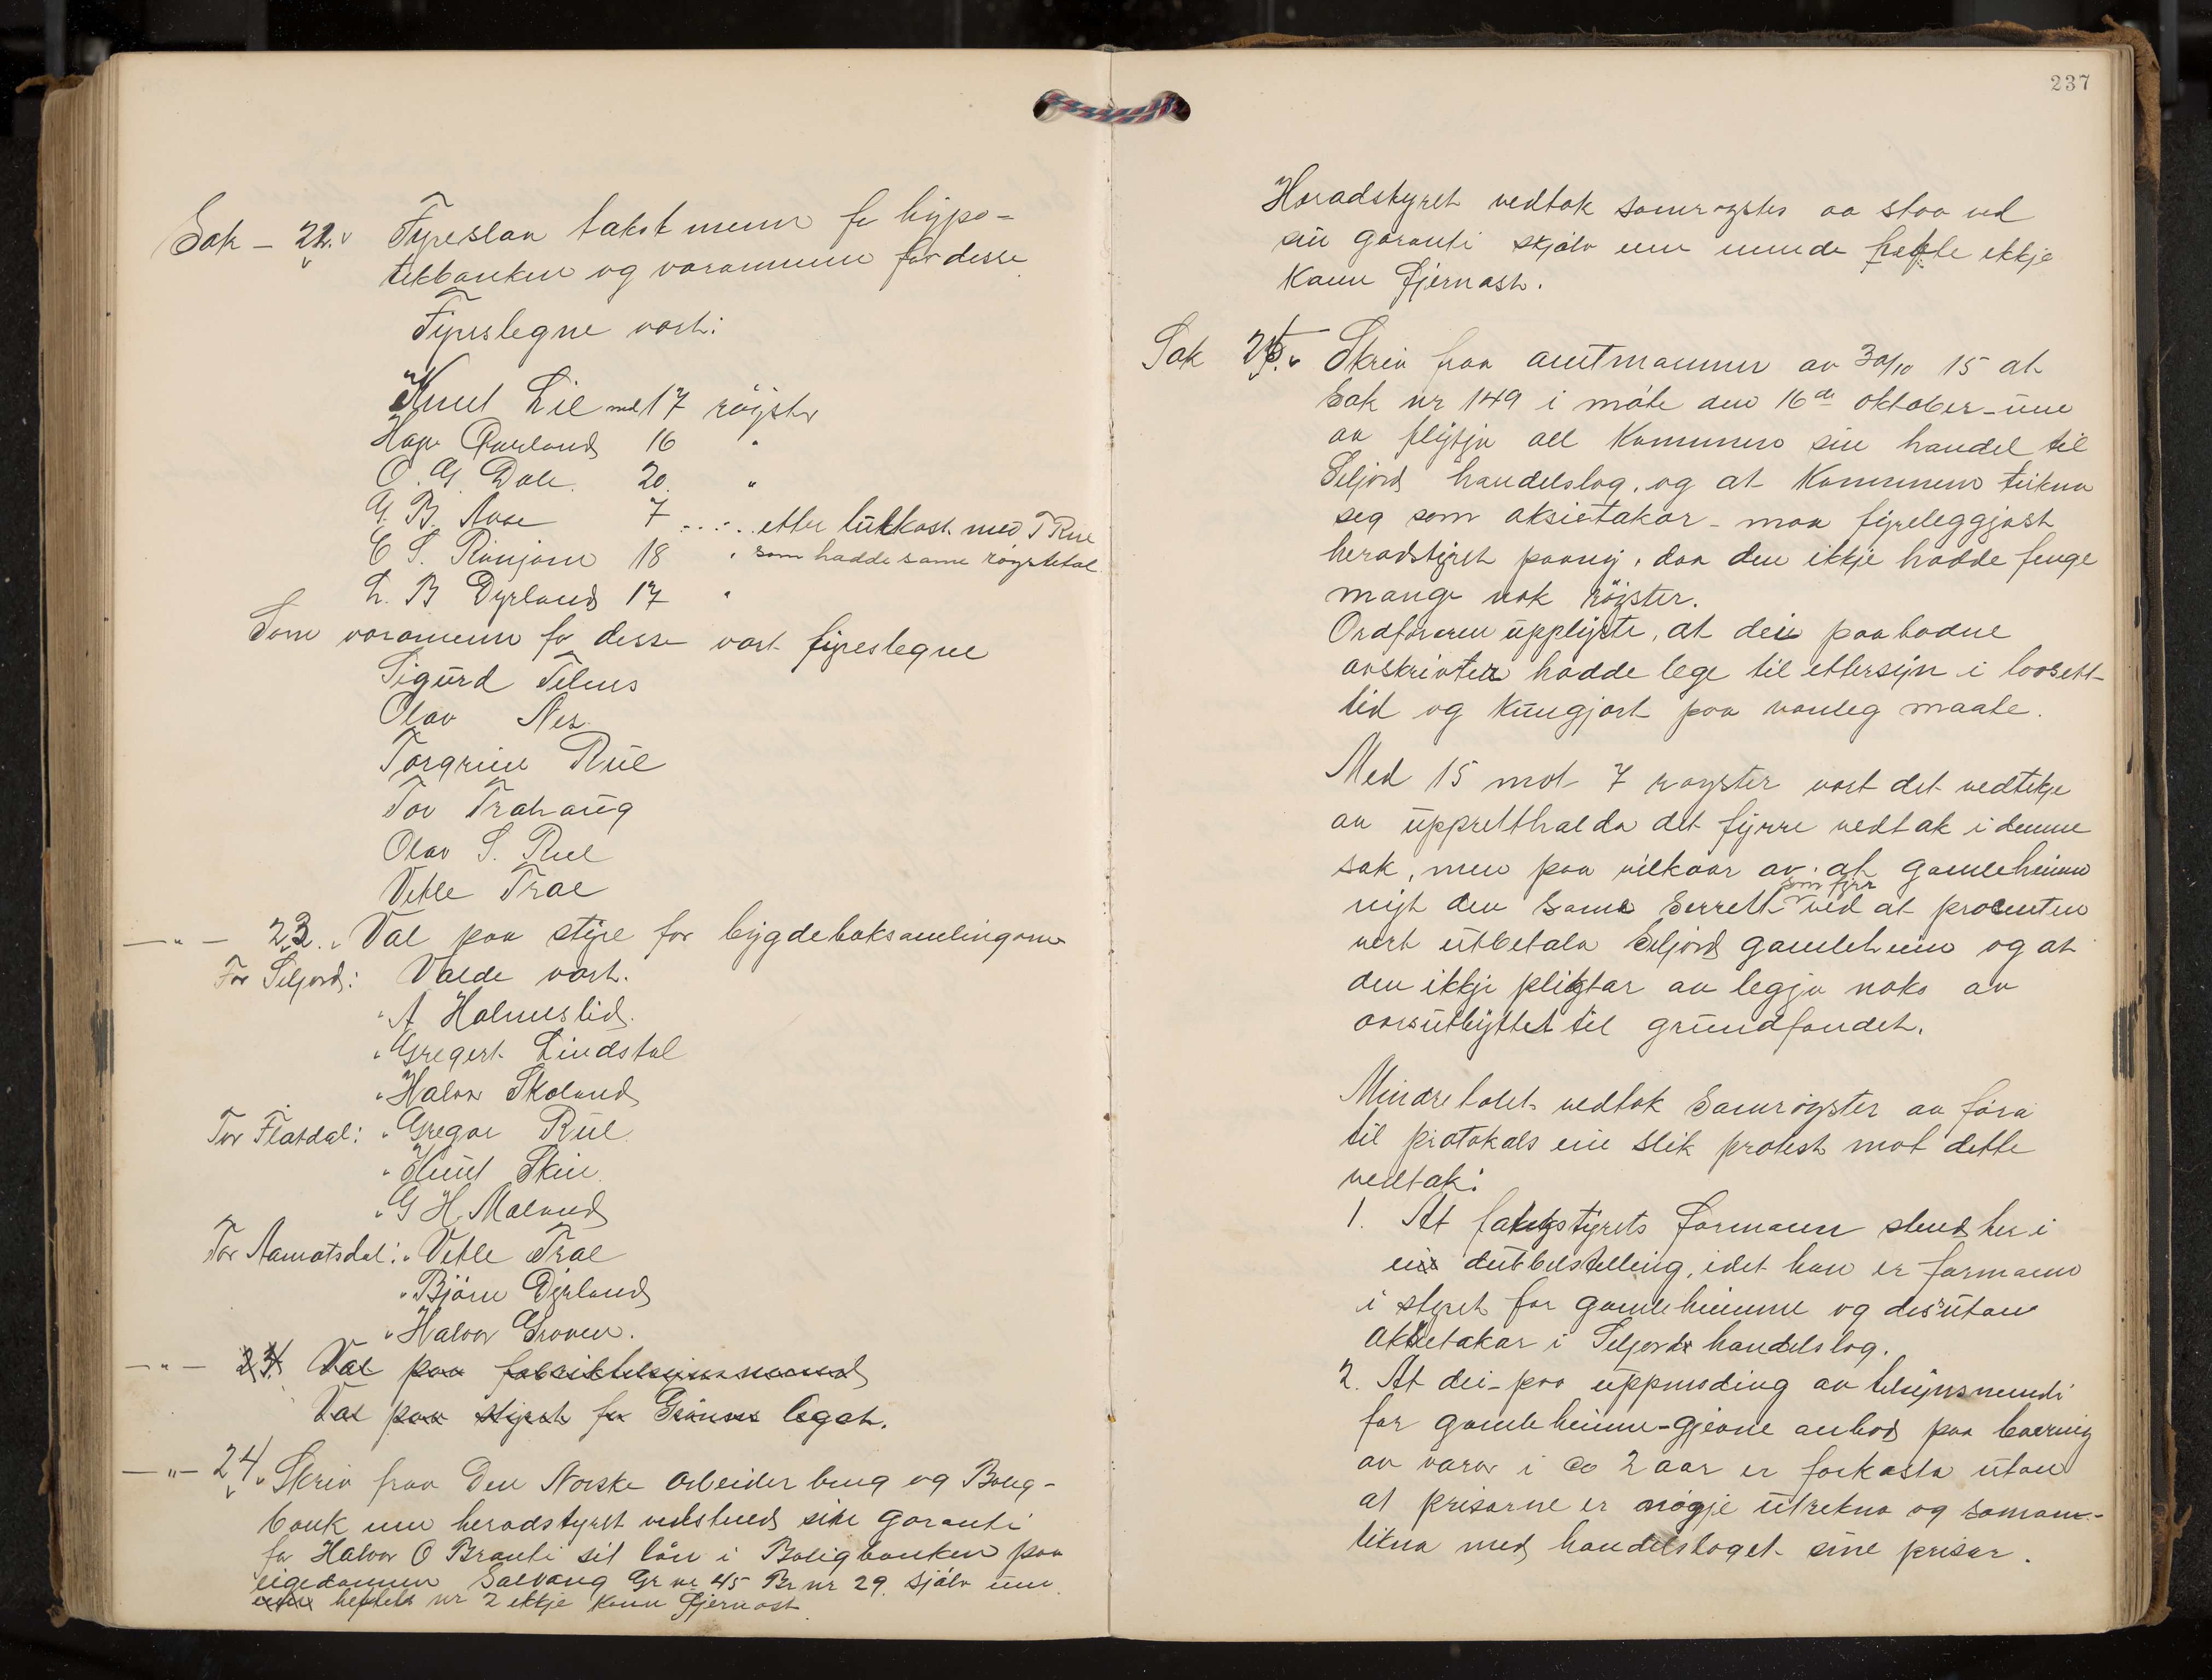 Sak - 22. Fyreslaa takstmenn for hypo-
tekbanken og varamenn for desse
Fyreslegne vart:
Knut Lie med 17 røyster
16 "
O. G. Dale. 20 "
G. B. Aase 7 .. : .. etter lutkast med T Rue
18 " som hadde same røystetal
L. B Dyrland 17 "
Som varamenn for desse vart fyreslegne
Sigurd
Olav Nes
Torgrim Rue
Tov Trahaug
Olav S. Rue
Vetle Trae
— " — 23. Val paa styre for bygdeboksamlingane
For Seljord: Valde vart.
" A Holmslid.
" Gregert Lindstal
" Halvor Skoland
For Flatdal: " Gregar Rue
" Knut Skin
" G H. Maland
For Aamotsdal: " Vetle Trae
" Bjørn Dyrland
" Halvor Groven.
— " — Val paa fabriktilsynsmannd
Val paa styret for legat.
— " — 24. Skriv fraa Den Norske Arbeiderbrug og Bolig-
bank um heradstyret vedstend sin garanti
for Halvor O Brauti sit lån i Boligbanken paa
eigedommen Solvang Gr nr 45 Br nr 29. sjølv um
heftels nr 2 ikkje kann fjernast
237
Heradstyret vedtok samrøystes aa staa ved
sin garanti sjølv um nemde hefte ikkje
kann fjernast.
Sak 25. Skriv fraa amtmannen av 30/10 15 at
Sak nr 149 i møte den 16de oktober - um
aa flytja all kommunens sin handel til
Seljord handelslag, og at kommunen teikna
seg som aksietakar - maa fyreleggjast
heradstyret paany, daa den ikkje hadde fenge
mange nok røyster.
Ordføraren upplyste, at dei paabodne
avskrivter hadde lege til ettersyn i lovsett
tid og kungjort paa vanleg maate.
Med 15 mot 7 røyster vart det vedtekje
aa uppretthalda det fyrre vedtak i denne
sak, men paa vilkaar av: at gamleheimen
som fyrr
nyt den same serrett ved at procenten
vert utbetala Seljord gamleheim og at
den ikkje pligtar aa legja noko av
aarsutbyttet til grundfondet.
Mindretalet vedtok samrøystes aa føra
til protokols ein slik protest mot dette
vedtak:
1. At fatigstyrets formann stend her i
ei dubbelstelling, idet han er formann
i styret for gamleheimen og desutan
aktietakar i Seljord handelslag.
2. At dei - paa uppmoding av tilsynsnemndi
for gamleheimen - gjevne anbod paa levering
av varor i ca 2 aar er forkasta utan
at prisarne er nøgje utrekna og saman-
likna med handelslaget sine prisar.